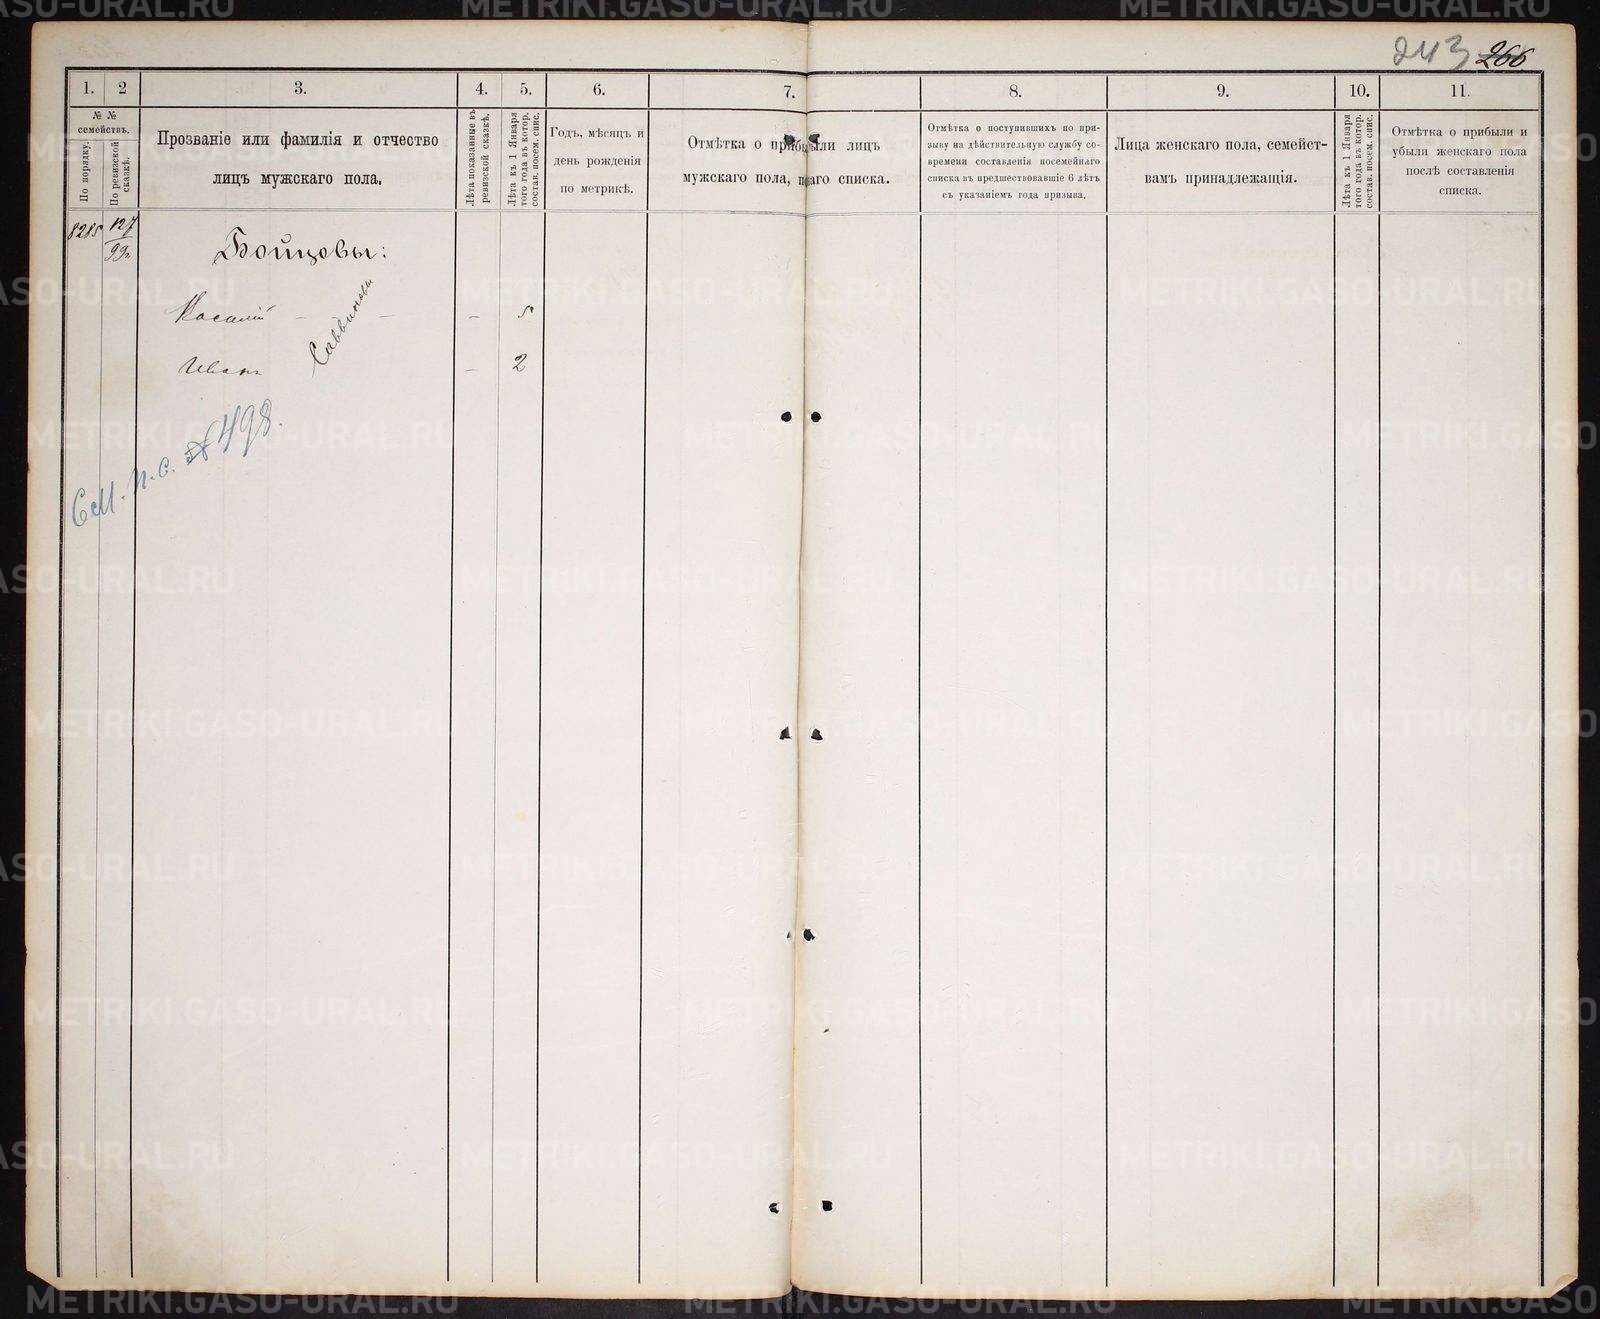 243 266
1. 2 3. 4. 5. 6. 7. 8. 9. 10. 11.
№ №
семействъ.
По порядку.
По ревизской
сказкѣ.
Прозваніе или фамилія и отчество
лицъ мужскаго пола.
Лѣта показанные въ
ревизской сказкѣ.
Лѣта къ 1 Января
того года въ котор.
состав. посем. спис.
Годъ, мѣсяцъ и
день рожденія
по метрикѣ.
Отмѣтка о прибыли лицъ
мужскаго пола, наго списка.
Отмѣтка о поступившихъ по при-
зыву на дѣйствительную службу со-
времени составленія посемейнаго
списка въ предшествовавшіе 6 лѣтъ
съ указаніемъ года призыва.
Лица женскаго пола, семейст-
вамъ принадлежащія.
Лѣта къ 1 Января
того года въ котор.
состав. посем. спис.
Отмѣтка о прибыли и
убыли женскаго пола
послѣ составленія
списка.
8285 127
Бойцовы:
Василій — — — 5
Саввиновы
Иванъ — 2
См. п.с. № 498.
METRIKI.GASO-URAL.RU